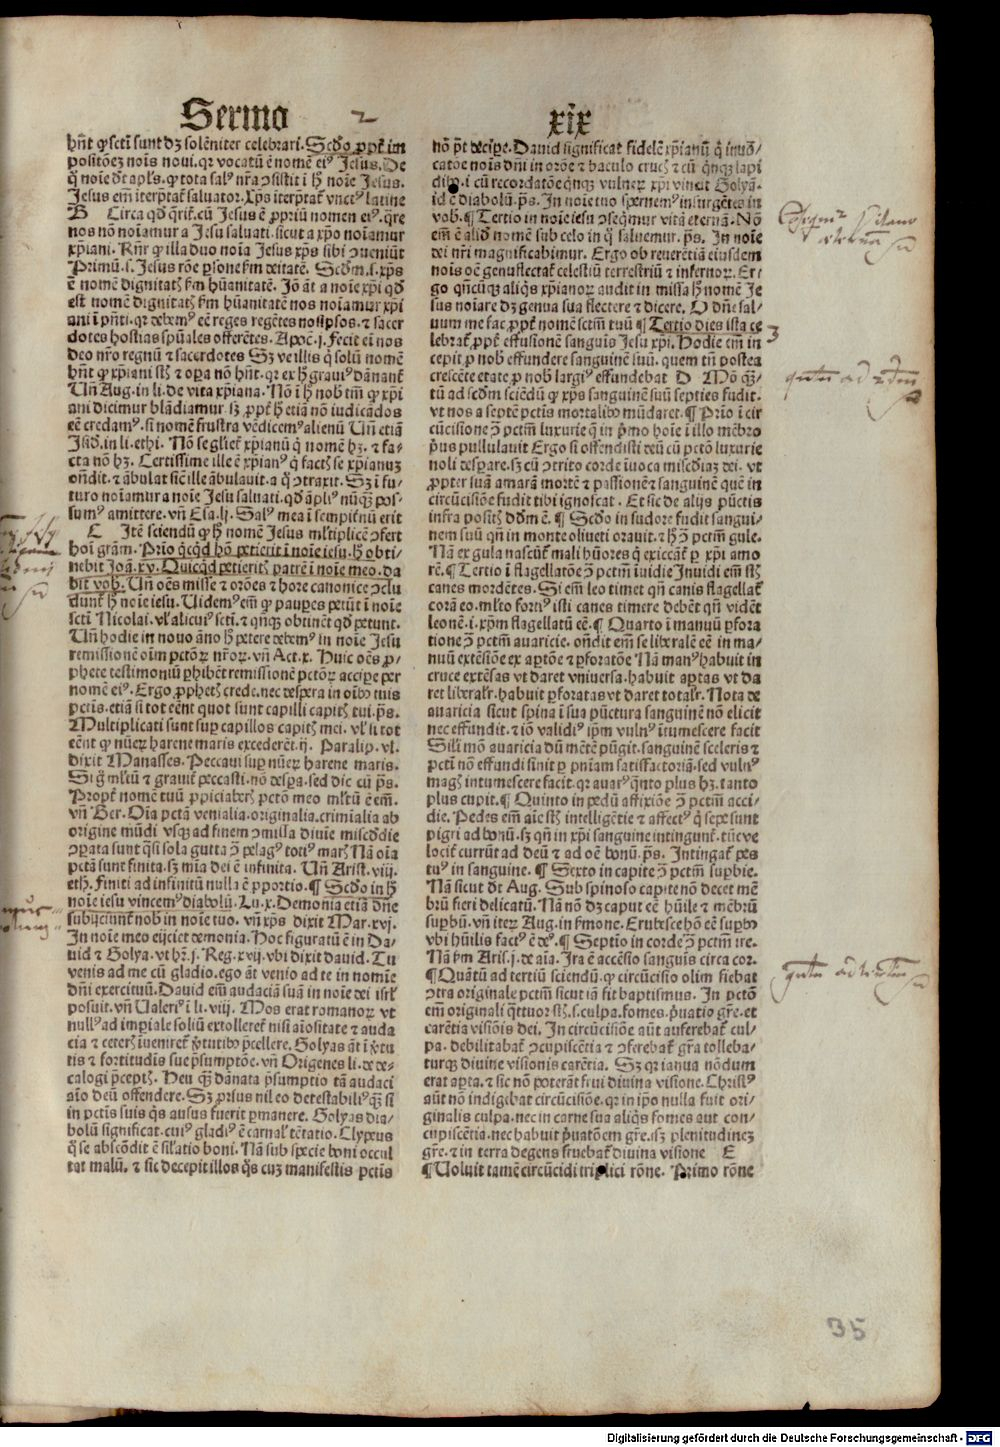 Sermo xix
hn̄t qꝫ scti sunt dꝫ solēniter celebrari. Scd̓o ꝓpt̄ im
positōeꝫ nois noui. qꝛ vocatū ē nomē eiꝰ Jesus. De
q̊ noie dt̄ apl̓s. ꝙ tota salꝰ nr̄a ↄsistit ī h̓ noie Jesus.
Jesus em̄ iterp̄tat̄ saluator. Xp̄s iterp̄tat̄ vnctꝰ latine
B Circa qd̓ q̄rit̄. cū Jesus ē ꝓpriū nomen eiꝰ. q̄re
nos nō noīamur a Jesu saluati. sicut a xp̄o noīamur
xp̄iani. Rn̄r ꝙ illa duo noīa Jesus xp̄s sibi ↄueniūt
Primū. s. Jesus rōe ꝑsone ẜm deitatē. Scd̓m. s. xp̄s
ē nomē dignitatꝭ ẜm hūanitatē. Jō āt a noīe xp̄i qd̓
est nomē dignitatꝭ ẜm hūanitatē nos noīamur xp̄i
ani ī p̄nti. qꝛ debemꝰ eē reges regētes nosip̄sos. ⁊ sacer
dotes hostias spūales offerētes. Apoc̄. j. Fecit ei nos
deo nr̄o regnū ⁊ sacerdotes Sꝫ ve illis q̇ solū nomē
hn̄t ꝙ xp̄iani st̄ ⁊ oꝑa nō hn̄t. qꝛ ex h̓ grauiꝰ dānant̄
Vn̄ Aug. in li. de vita xp̄iana. Nō ī h̓ nob̓ tm̄ ꝙ xp̄i
ani dicimur blādiamur. sꝫ ꝓpt̄ h̓ etiā nō iudicādos
eē credamꝰ. si nomē frustra vēdicemꝰ alienū Vn̄ etiā
Jsid̓. in li. ethi. Nō se gliet̄ xp̄ianū q̇ nomē hꝫ. ⁊ fa-
cta nō hꝫ. Certissime ille ē xp̄ianꝰ q̇ factꝭ se xp̄ianuꝫ
on̄dit. ⁊ ābulat sic̄ ille ābulauit. a q̊ ↄtraxit. Sꝫ ī fu-
turo noīamur a noīe Jesu saluati. qd̓ apl̓iꝰ nūqꝫ pos-
sumꝰ amittere. vn̄ Esa. lj. Salꝰ mea ī sempit̄nū erit
C Itē sciendū ꝙ h̓ nomē Jesus ml̓tiplicē ↄfert
hoī gr̄am. Prīo q̇cq̇d hō petierit ī noīe iesu. h̓ obti-
nebit Joā. xv. Quicq̇d petieritꝭ patrē ī noīe meo. da
bit̄ vob̓. Vn̄ oēs misse ⁊ orōes ⁊ hore canonice ↄclu
dunt̄ h̓ noīe iesu. Videmꝰ em̄ ꝙ pauꝑes petūt ī noīe
scti Nicolai. vl̓ alicuiꝰ scti. ⁊ qn̄qꝫ obtinēt qd̓ petunt.
Vn̄ hodie in nouo āno h̓ petere debemꝰ in noīe Jesu
remissionē oīm pctōꝝ nr̄oꝝ. vn̄ Act. x. Huic oēs ꝓ-
phete testimoniū ꝑhibēt remissionē pctōꝝ accipe per
nomē eiꝰ. Ergo ꝓphetꝭ crede. nec despera in oībꝰ tuis
pctis. etiā si tot eēnt quot sunt capilli capitꝭ tui. p̄s.
Multiplicati sunt suꝑ capillos capitꝭ mei. vl̓ si tot
eēnt ꝙ nūeꝝ harene maris excederēt. ij. Paralip. vl.
dixit Manasses. Peccaui suꝑ nūeꝝ harene maris.
Sigͥ ml̓tū ⁊ grauit̄ peccasti. nō desꝑa. sed dic cū p̄s.
Propt̄ nomē tuū ꝓpiciaberꝭ pctō meo ml̓tū ē em̄.
vn̄ Ber. Oīa pctā venialia. originalia. crimīalia ab
origine mūdi vsqꝫ ad finem ↄmissa diuīe miscd̓ie
ↄꝑata sunt q̄si sola gutta ↄ̄ pelagꝰ totiꝰ marꝭ Nā oīa
pctā sunt finita. sꝫ mīa dei ē infinita. Vn̄ Arist. viij.
eth. Finiti ad infinitū nulla ē ꝓportio. ¶ Scd̓o in h̓
noīe iesu vincemꝰ diabolū. Lu. x. Demonia etiā dn̄e
subijciunt̄ nob̓ in noīe tuo. vn̄ xp̄s dixit Mar. xvj.
In noīe meo eijciet demonia. Hoc figuratū ē in Da-
uid ⁊ Golya. vt hr̄. j. Reg. xvij. vbi dixit dauid. Tu
venis ad me cū gladio. ego āt venio ad te in nomīe
dn̄i exercituū. Dauid em̄ audaciā suā in noīe dei isrl̓
posuit. vn̄ Ualeriꝰ ī li. viij. Mos erat romanoꝝ vt
nullꝰ ad imꝑiale soliū extolleret̄ nisi aīositate ⁊ auda
cia ⁊ ceterꝭ iueniret̄ v̓tutibꝰ p̄cellere. Golyas āt ī v̓tu
tis ⁊ fortitudīs sue p̄sumptōe. vn̄ Origenes li. de de-
calogi p̄ceptꝭ. Heu qꝫ dānata p̄sumptio tā audaci
aīo deū offendere. Sꝫ ꝓrsus nil eo detestabiliꝰ qꝫ si
in pctis suis q̇s ausus fuerit ꝑmanere. Golyas dia-
bolū significat. cuiꝰ gladiꝰ ē carnal̓ tētatio. Clypeus
q̊ se abscōdit ē sil̓atio boni. Nā sub specie boni occul
tat malū. ⁊ sic decepit illos q̇s cuꝫ manifestis pctis
nō p̄t decipe. Dauid significat fidelē xp̄ianū q̇ inuo-
catōe nois dn̄i in orōe ⁊ baculo crucꝭ ⁊ cū q̇nqꝫ lapi
dibꝰ. i. cū recordatōe q̇nqꝫ vulneꝝ xp̄i vincit Golyā.
id ē diabolū. p̄s. In noīe tuo spernemꝰ insurgētes in
vob̓. ¶ Tertio in noīe iesu ↄseqmur vitā eternā. Nō
em̄ ē aliud nomē sub celo in q̊ saluemur. p̄s. In noīe
dei nr̄i magnificabimur. Ergo ob reuerētiā eiusdem
nois oē genu flectat̄ celestiū terrestriū ⁊ infernoꝝ. Er-
go qn̄cūqꝫ aliq̇s xp̄ianoꝝ audit in missa h̓ nomē Je
sus noiare dꝫ genua sua flectere ⁊ dicere. O dn̄e sal-
uum me fac ꝓpt̄ nomē sctm̄ tuū ¶ Tertio dies ista ce
lebrat̄ ꝓpt̄ effusionē sanguīs Jesu xp̄i. Hodie em̄ in
cepit ꝓ nob̓ effundere sanguinē suū. quem tn̄ postea
crescēte etate ꝓ nob̓ largiꝰ effundebat D Mō qꝫ-
tū ad scd̓m sciēdū ꝙ xp̄s sanguinē suū septies fudit.
vt nos a septē pctis mortalibꝰ mūdaret. ¶ Prīo ī cir
cūcisione ↄ̄ pctm̄ luxurie q̄ in p̄mo hoīe ī illo mēbro
pꝰus pullulauit Ergo si offendisti deū cū pctō luxurie
noli desꝑare. sꝫ cū ↄtrito corde īuoca miscd̓iaꝫ dei. vt
ꝓpter suā amarā mortē ⁊ passionē ⁊ sanguinē quē in
circūcisiōe fudit tibi ignoscat. Et sic de alijs pūctis
infra positꝭ dd̓m ē. ¶ Scd̓o in sudore fudit sangui-
nem suū qn̄ in monte oliueti orauit. ⁊ h̓ ↄ̄ pctm̄ gule.
Nā ex gula nascūt̄ mali hūores q̇ exiccāt̄ ꝑ xp̄i amo
rē. ¶ Tertio ī flagellatōe ↄ̄ pctm̄ īuidie Inuidi em̄ st̄
canes mordētes. Si em̄ leo timet qn̄ canis flagellat̄
corā eo. ml̓to fortiꝰ isti canes timere debēt qn̄ vidēt
leonē. i. xp̄m flagellatū eē. ¶ Quarto ī manuū ꝑfora
tione ↄ̄ pctm̄ auaricie. on̄dit em̄ se liberalē eē in ma-
nuū extēsiōe ex aꝑtōe ⁊ ꝑforatōe Nā manꝰ habuit in
cruce extēsas vt daret vniuersa. habuit aꝑtas vt da
ret liberal̓r. habuit ꝑforatas vt daret total̓r. Nota de
auaricia sicut spina ī sua pūctura sanguinē nō elicit
nec effundit. ⁊ iō validiꝰ ip̄m vulnꝰ ītumescere facit
Sil̓i mō auaricia dū mētē pūgit. sanguinē sceleris ⁊
pcti nō effundi sinit ꝑ pn̄iam satisfactoriā. sed vulnꝰ
magꝭ intumescere facit. qꝛ auarꝰ q̄nto plus hꝫ. tanto
plus cupit. ¶ Quinto in pedū affixiōe ↄ̄ pctm̄ acci-
die. Pedes em̄ aīe st̄ intelligētie ⁊ affectꝰ q̇ sepe sunt
pigri ad bonū. sꝫ qn̄ in xp̄i sanguine intingunt̄. tūc ve
locit̄ currūt ad deū ⁊ ad oē bonū. p̄s. Intingat̄ pes
tuꝰ in sanguine. ¶ Sexto in capite ↄ̄ pctm̄ suꝑbie.
Nā sicut dt̄ Aug. Sub spinoso capite nō decet mē
brū fieri delicatū. Nā nō dꝫ caput eē hūile ⁊ mēbrū
suꝑbū. vn̄ iteꝝ Aug. in ẜmone. Erubsce hō eē suꝑbꝰ
vbi hūilis factꝰ ē deꝰ. ¶ Septīo in corde ↄ̄ pctm̄ ire.
Nā ẜm Aris. j. de aīa. Ira ē accēsio sanguīs circa cor.
¶ Quātū ad tertiū sciendū. ꝙ circūcisio olim fiebat
ↄtra originale pctm̄ sicut iā fit baptismus. In pctō
em̄ originali q̄ttuor st̄. s. culpa. fomes. p̄uatio gr̄e. et
carētia visiōis dei. In circūcisiōe aūt auferebat̄ cul-
pa. debilitabat̄ ↄcupiscētia ⁊ ↄferebat̄ gr̄a tolleba-
turqꝫ diuine visionis carētia. Sꝫ qꝛ ianua nōdum
erat aꝑta. ⁊ sic nō poterāt frui diuina visione. Christꝰ
aūt nō indigebat circūcisiōe. qꝛ in ip̄o nulla fuit ori-
ginalis culpa. nec in carne sua aliq̇s fomes aut con-
cupiscētia. nec habuit p̄uatōem gr̄e. isꝫ plenitudineꝫ
gr̄e. ⁊ in terra degens fruebat̄ diuina visione E
¶ Uoluit tamē circūcidi triplici rōne. Primo rōne
35
Digitalisierung gefördert durch die Deutsche Forschungsgemeinschaft - DFG